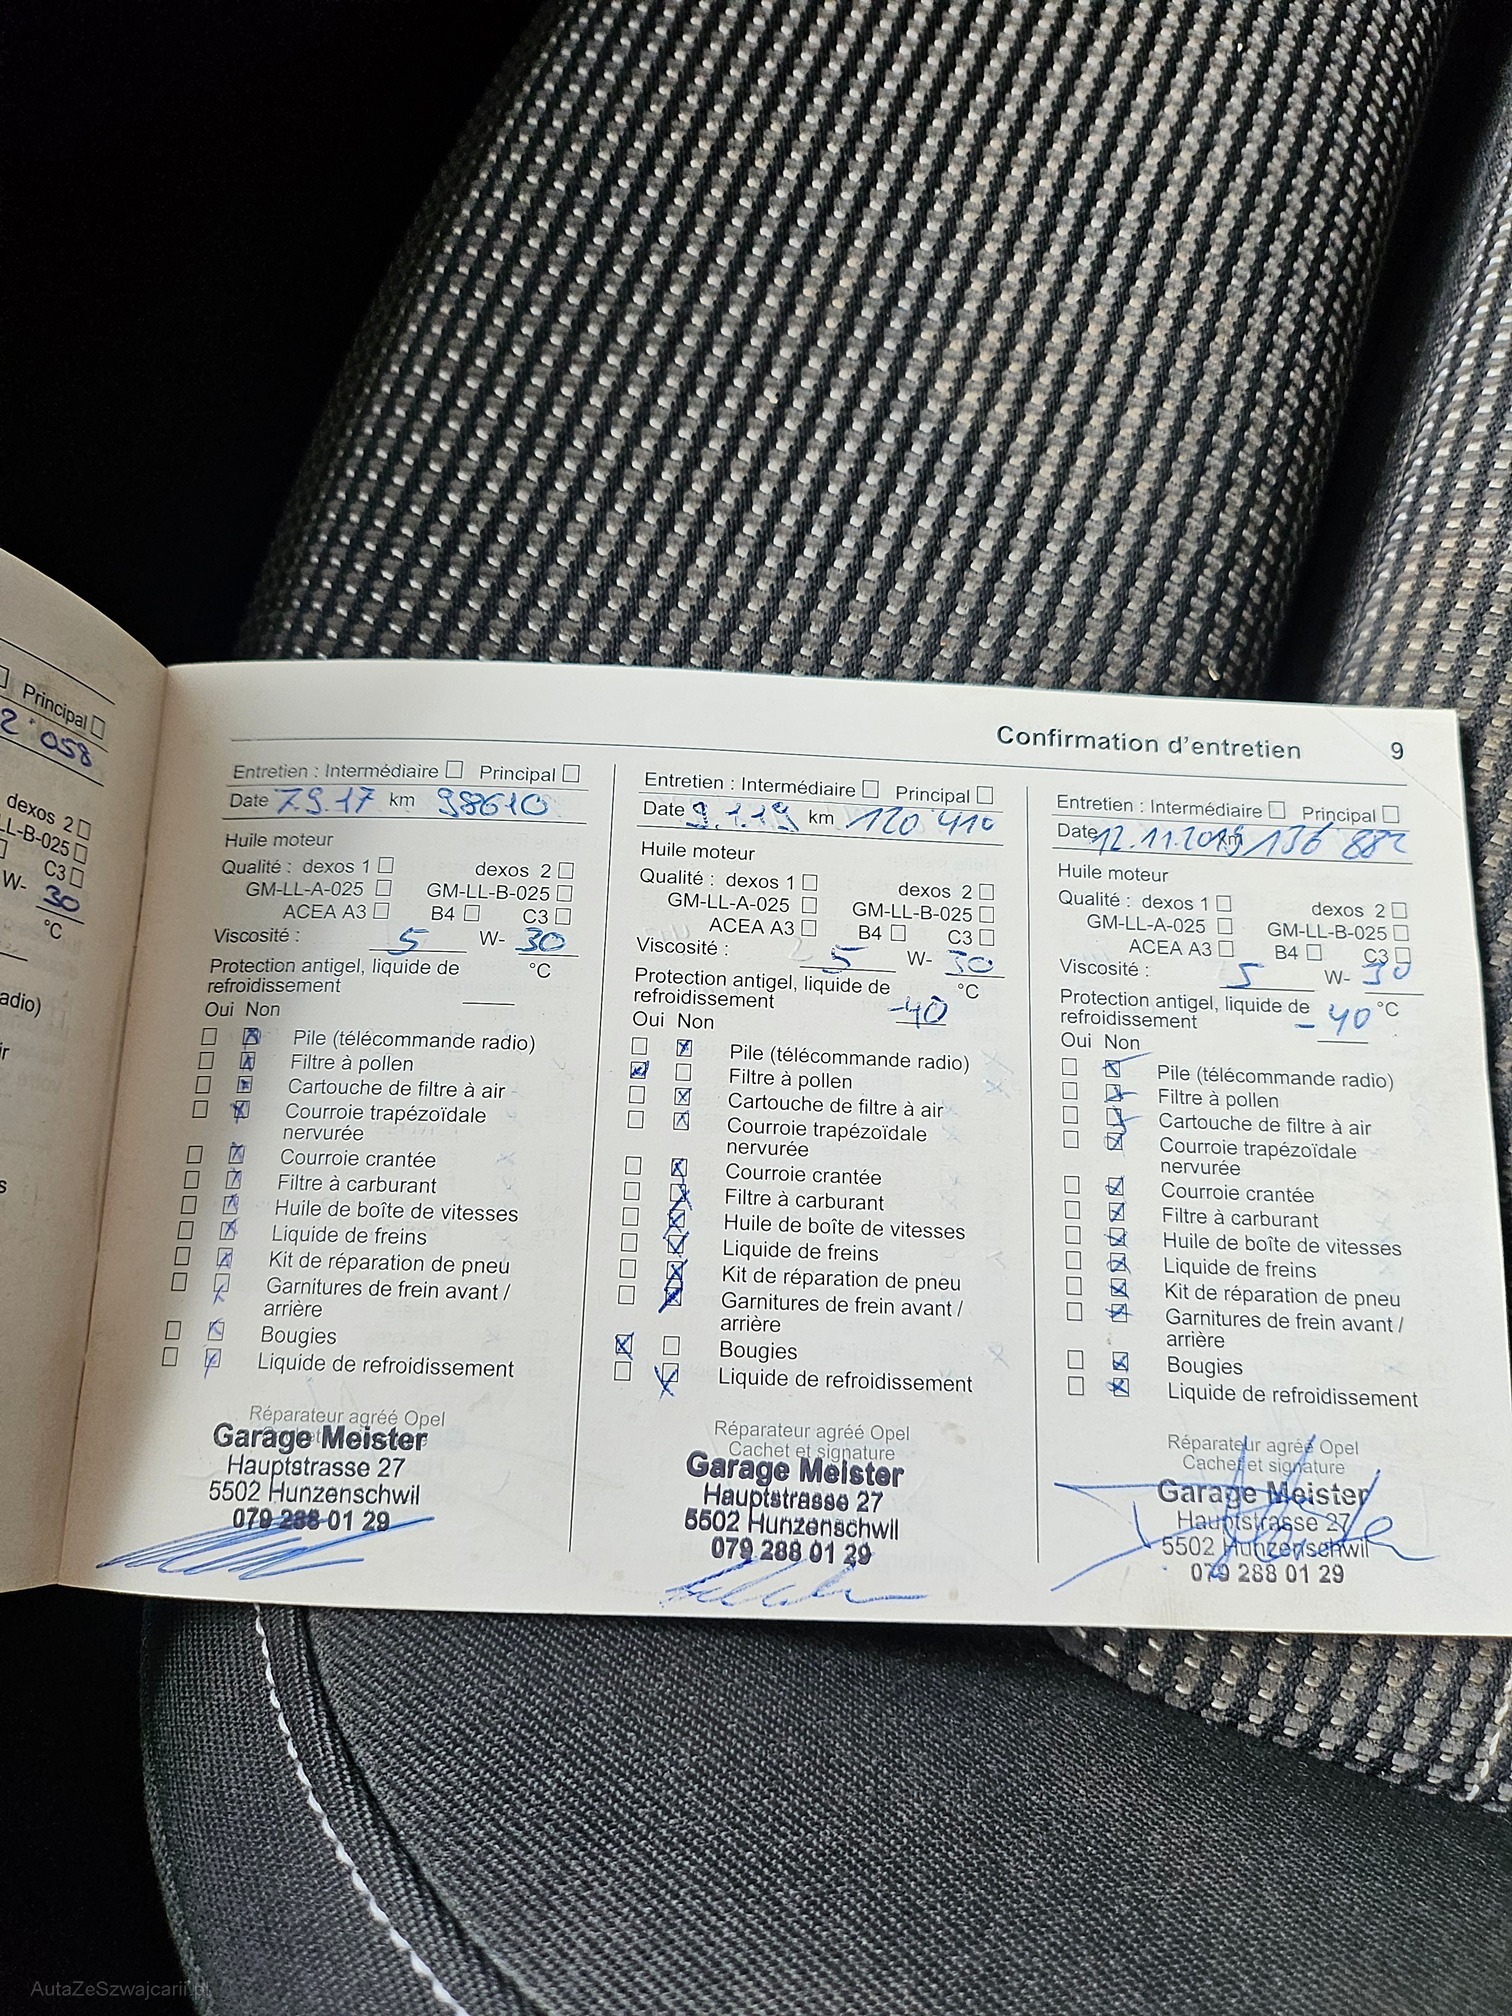 Principal
2 058
dexos 2
LL-B-025
C3
W- 30
°C
adio)
Confirmation d'entretien 9
Entretien : Intermédiaire Principal
Date 7.9.17 km 98610
Huile moteur
Qualité : dexos 1 dexos 2
GM-LL-A-025 GM-LL-B-025
ACEA A3 B4 C3
Viscosité : 5 W- 30
Protection antigel, liquide de °C
refroidissement
Oui Non
Pile (télécommande radio)
Filtre à pollen
Cartouche de filtre à air
Courroie trapézoïdale
nervurée
Courroie crantée
Filtre à carburant
Huile de boîte de vitesses
Liquide de freins
Kit de réparation de pneu
Garnitures de frein avant /
arrière
Bougies
Liquide de refroidissement
Réparateur agréé Opel
Garage Meister
Hauptstrasse 27
5502 Hunzenschwil
079 288 01 29
Entretien : Intermédiaire Principal
Date 9.1.19 km 120 410
Huile moteur
Qualité : dexos 1 dexos 2
GM-LL-A-025 GM-LL-B-025
ACEA A3 B4 C3
Viscosité : 5 W- 30
Protection antigel, liquide de °C
refroidissement -40
Oui Non
Pile (télécommande radio)
Filtre à pollen
Cartouche de filtre à air
Courroie trapézoïdale
nervurée
Courroie crantée
Filtre à carburant
Huile de boîte de vitesses
Liquide de freins
Kit de réparation de pneu
Garnitures de frein avant /
arrière
Bougies
Liquide de refroidissement
Réparateur agréé Opel
Cachet et signature
Garage Meister
Hauptstrasse 27
5502 Hunzenschwil
079 288 01 29
Entretien : Intermédiaire Principal
Date 12.11.2019 km 136 882
Huile moteur
Qualité : dexos 1 dexos 2
GM-LL-A-025 GM-LL-B-025
ACEA A3 B4 C3
Viscosité : 5 W- 30
Protection antigel, liquide de °C
refroidissement - 40
Oui Non
Pile (télécommande radio)
Filtre à pollen
Cartouche de filtre à air
Courroie trapézoïdale
nervurée
Courroie crantée
Filtre à carburant
Huile de boîte de vitesses
Liquide de freins
Kit de réparation de pneu
Garnitures de frein avant /
arrière
Bougies
Liquide de refroidissement
Réparateur agréé Opel
Cachet et signature
Garage Meister
Hauptstrasse 27
5502 Hunzenschwil
079 288 01 29
AutaZeSzwajcarii.pl